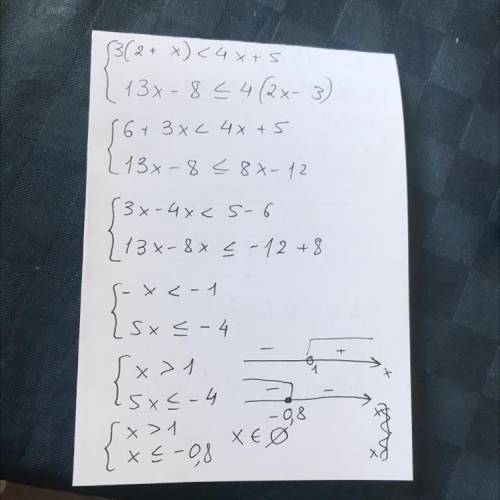 { 3(2 + x) < 4x + 5
13x - 8 ≤ 4(2x - 3)
{ 6 + 3x < 4x + 5
13x - 8 ≤ 8x - 12
{ 3x - 4x < 5 - 6
13x - 8x ≤ -12 + 8
{ - x < -1
5x ≤ -4
{ x > 1
5x ≤ -4
{ x > 1
x ≤ -0,8
- +
1 x
- -
-0,8 x
x ∈ ∅
x